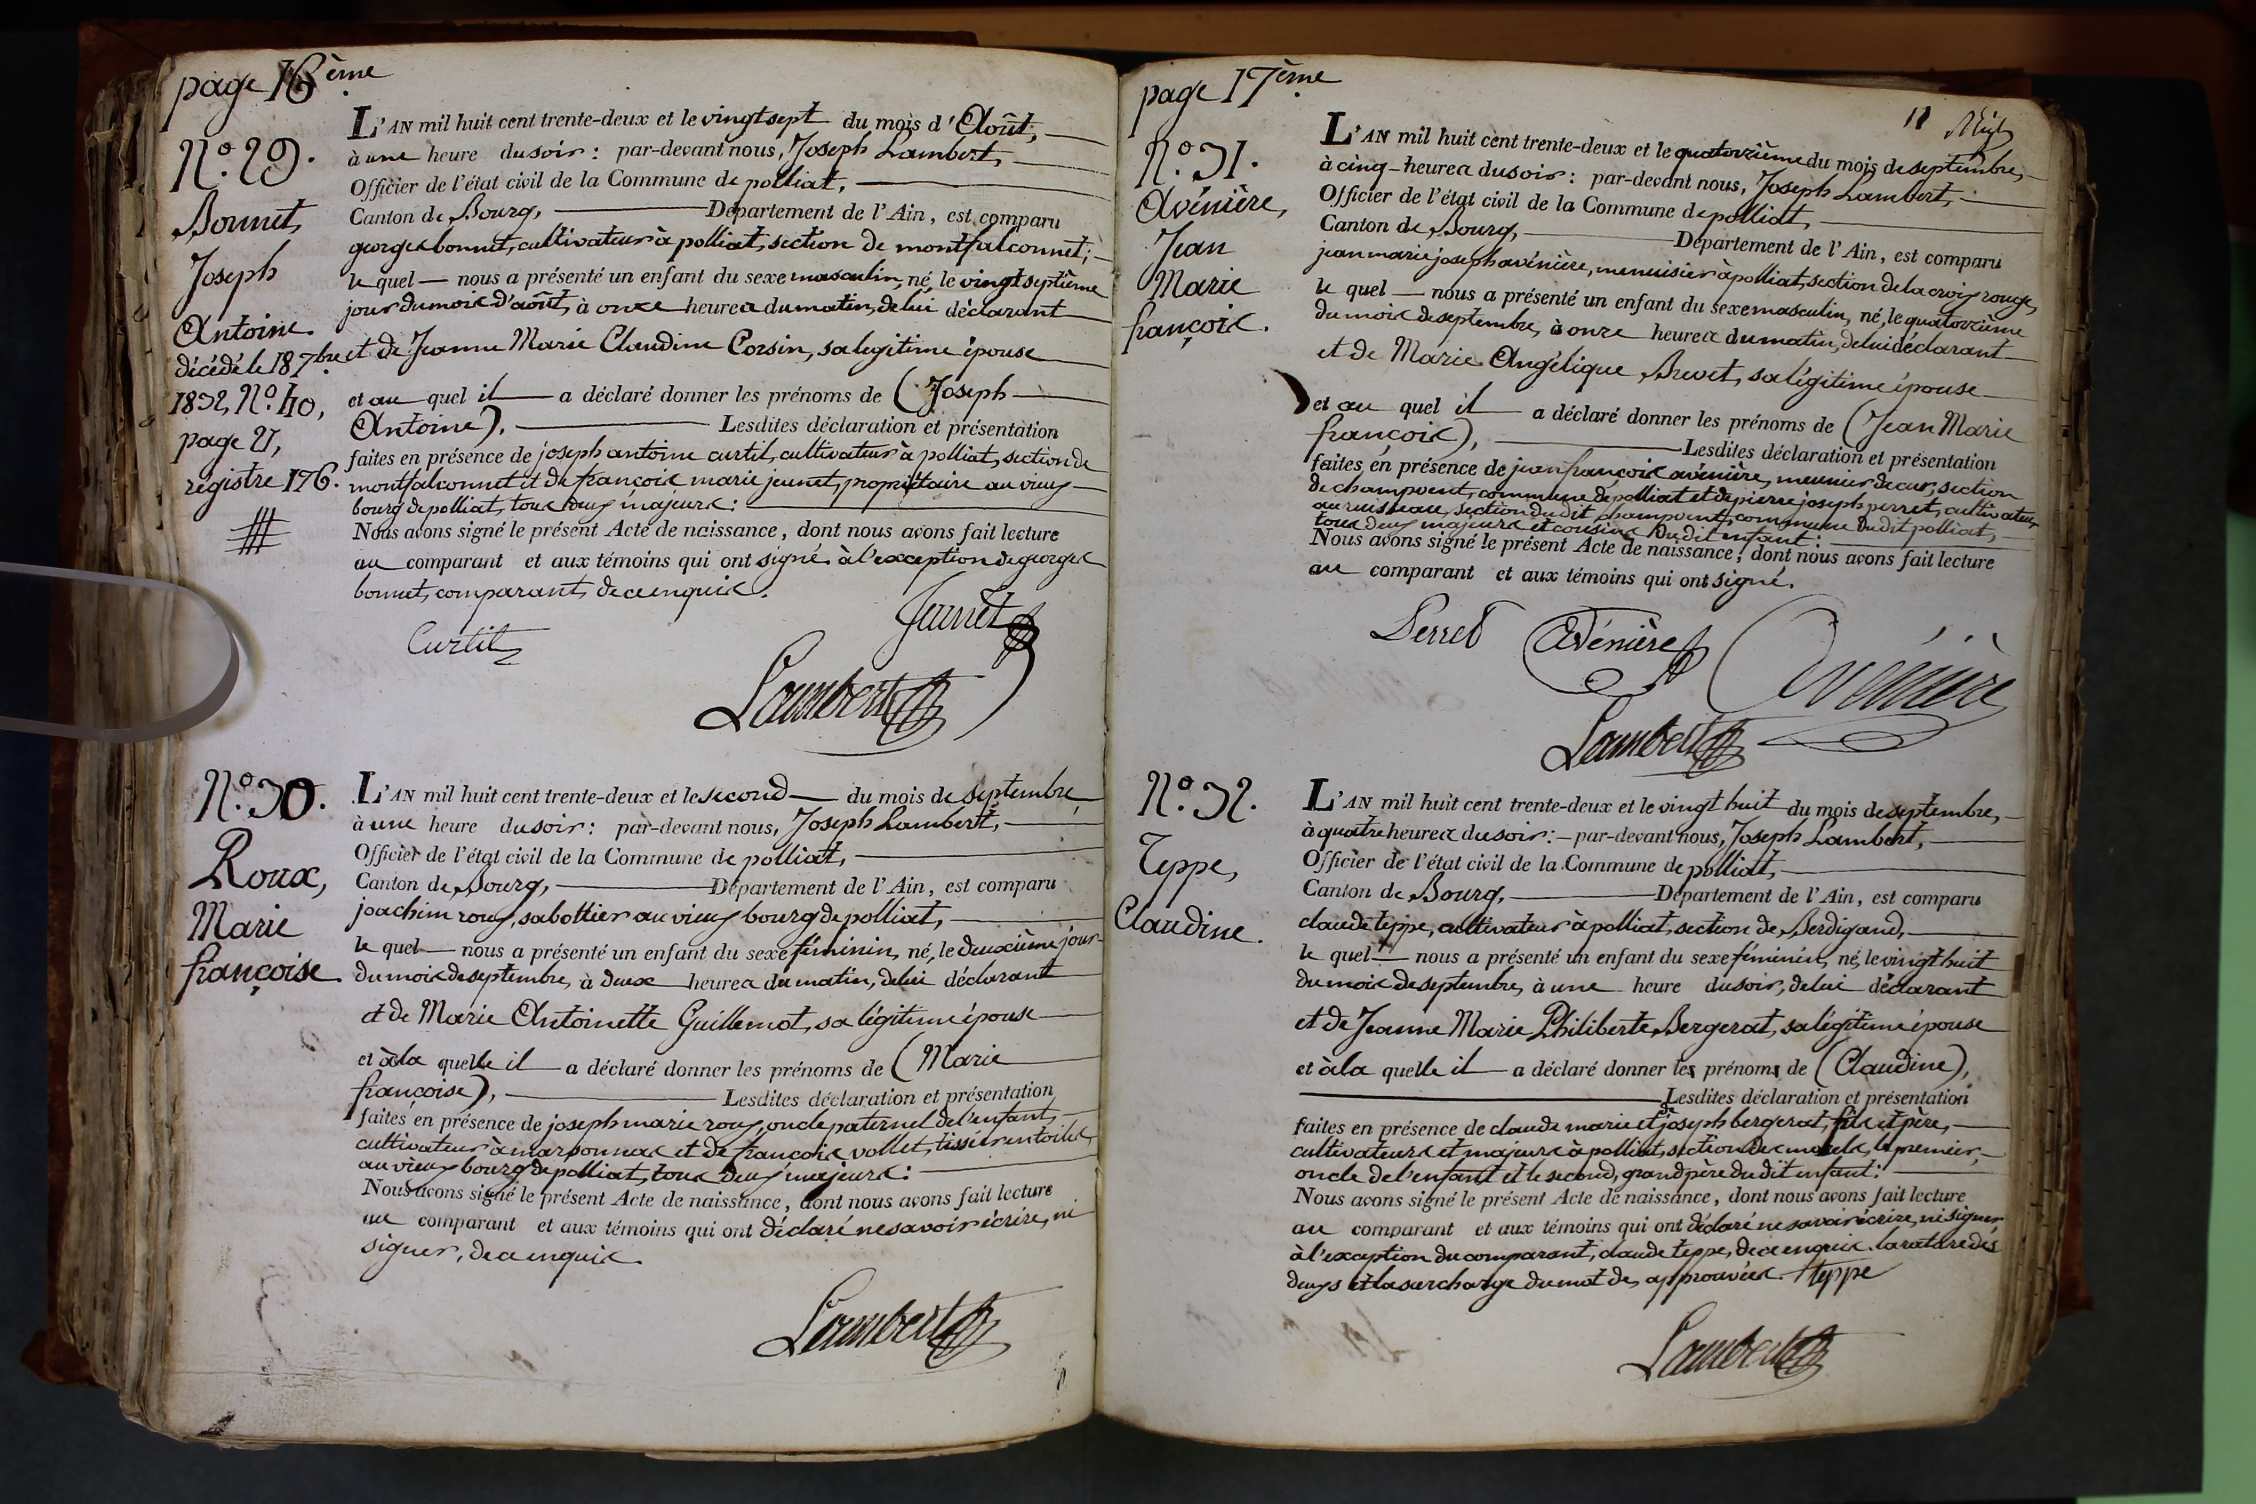 page 16ème
N.º 29.
Bonnet,
Joseph
Antoine.
décédé le 18 7bre
1832, N.º 40,
page 21,
registre 176.
L'AN mil huit cent trente-deux et le vingt sept du mois d'Août,
à une heure du soir : par-devant nous, Joseph Lambert,
Officier de l'état civil de la Commune de polliat,
Canton de Bourg, Département de l'Ain, est comparu
george bonnet, cultivateur à polliat, section de montfalconnet;
le quel nous a présenté un enfant du sexe masculin, né, le vingt septième
jour du mois d'août, à onze heures du matin, de lui déclarant
et de Jeanne Marie Claudine Corsin, sa legitime épouse
et au quel il a déclaré donner les prénoms de (Joseph
Antoine), Lesdites déclaration et présentation
faites en présence de joseph antoine curtil, cultivateur à polliat, section de
montfalconnet et de françois marie jeunet, propriétaire au vieux
bourg de polliat, tous deux majeurs :
Nous avons signé le présent Acte de naissance, dont nous avons fait lecture
au comparant et aux témoins qui ont signé à l'exception de george
bonnet, comparant, de ce enquis.
Curtil
Jeunet
Lambert
N.º 30.
Roux,
Marie
françoise
L'AN mil huit cent trente-deux et le second du mois de septembre,
à une heure du soir : par-devant nous, Joseph Lambert,
Officier de l'état civil de la Commune de polliat,
Canton de Bourg, Département de l'Ain, est comparu
joachim roux, sabottier au vieux bourg de polliat,
le quel nous a présenté un enfant du sexe féminin, né, le deuxième jour
du mois de septembre, à deux heures du matin, de lui déclarant
et de Marie Antoinette Guillemot, sa légitime épouse
et à la quelle il a déclaré donner les prénoms de (Marie
françoise), Lesdites déclaration et présentation
faites en présence de joseph marie roux, oncle paternel de l'enfant,
cultivateur à marsonnas et de françois vollet, tissier en toile,
au vieux bourg de polliat, tous deux majeurs :
Nous avons signé le présent Acte de naissance, dont nous avons fait lecture
au comparant et aux témoins qui ont déclaré ne savoir écrire, ni
signer, de ce enquis.
Lambert
page 17ème
11
N.º 31.
Avénière,
Jean
Marie
françois.
L'AN mil huit cent trente-deux et le quatorzième du mois de septembre,
à cinq heures du soir : par-devant nous, Joseph Lambert,
Officier de l'état civil de la Commune de polliat,
Canton de Bourg, Département de l'Ain, est comparu
jean marie joseph avénière, menuisier à polliat, section de la croix rouge,
le quel nous a présenté un enfant du sexe masculin, né, le quatorzième
du mois de septembre, à onze heures du matin, de lui déclarant
et de Marie Angélique Brevet, sa légitime épouse
et au quel il a déclaré donner les prénoms de (Jean Marie
françois), Lesdites déclaration et présentation
faites en présence de jean françois avénière, meunier de cur, section
de champvent, commune de polliat et de pierre joseph perret, cultivateur
au ruisseau, section du dit champvent, commune du dit polliat,
tous deux majeurs et cousins du dit enfant :
Nous avons signé le présent Acte de naissance, dont nous avons fait lecture
au comparant et aux témoins qui ont signé.
Perret
Avénière
Avénière
Lambert
N.º 32.
Teppe,
Claudine.
L'AN mil huit cent trente-deux et le vingt huit du mois de septembre,
à quatre heures du soir : par-devant nous, Joseph Lambert,
Officier de l'état civil de la Commune de polliat,
Canton de Bourg, Département de l'Ain, est comparu
claude teppe, cultivateur à polliat, section de Berdigand,
le quel nous a présenté un enfant du sexe féminin, né, le vingt huit
du mois de septembre, à une heure du soir, de lui déclarant
et de Jeanne Marie Philiberte Bergerat, sa légitime épouse
et à la quelle il a déclaré donner les prénoms de (Claudine),
Lesdites déclaration et présentation
faites en présence de claude marie et de joseph bergerat, fils et père,
cultivateurs et majeurs à polliat, section des le premier,
oncle de l'enfant et le second, grand père du dit enfant :
Nous avons signé le présent Acte de naissance, dont nous avons fait lecture
au comparant et aux témoins qui ont déclaré ne savoir écrire, ni signer
à l'exception du comparant, claude teppe, de ce enquis. la rature des
deux et la surcharge du mot de, approuvées. teppe
Lambert